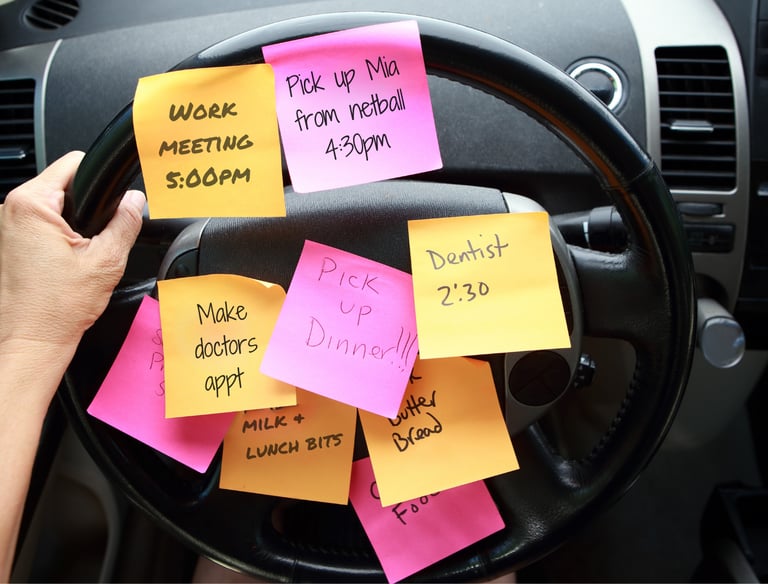 WORK
MEETING
5:00PM
Pick up Mia
from netball
4:30pm
Dentist
2:30
Pick
up
Dinner!!!
Make
doctors
appt
MILK +
LUNCH BITS
Butter
Bread